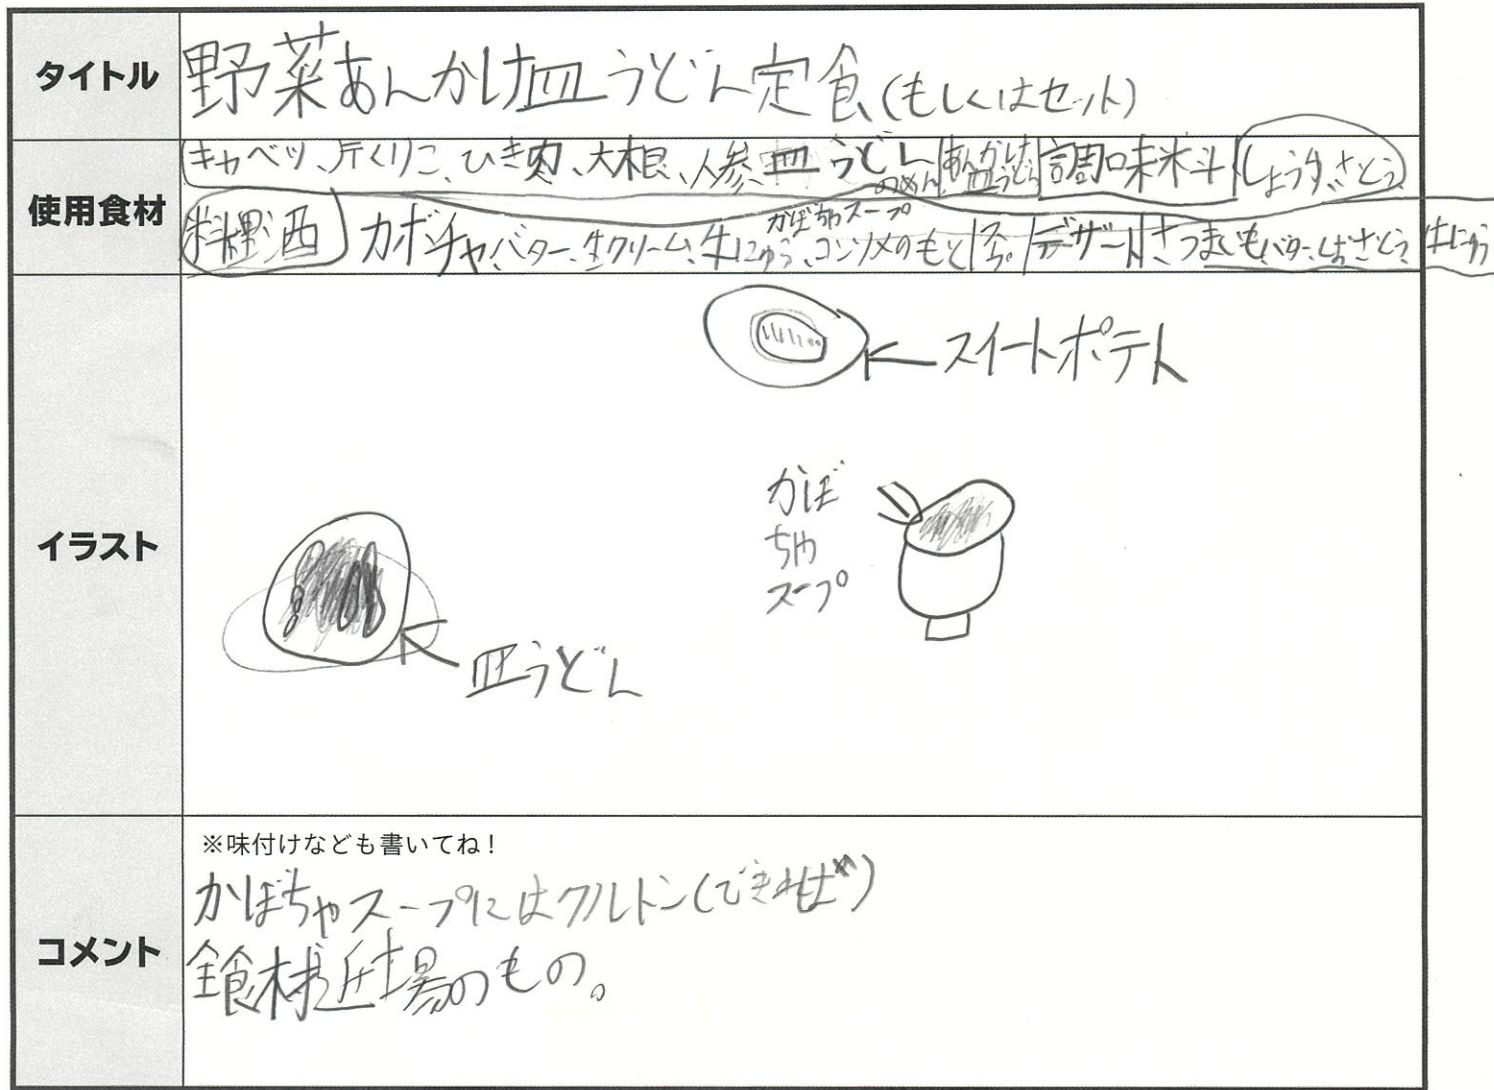 タイトル
野菜あんかけ皿うどん定食(もしくはセット)
使用食材
キャベツ、片くりこ、ひき肉、大根、人参、皿うどんのめん
あんかけ皿うどん
調味料
しょうゆ、さとう
料理酒
かぼちゃスープ
カボチャ、バター、生クリーム、牛にゅう、コンソメのもと
デザート
さつまいも、バター、しお、さとう
牛にゅう
イラスト
スイートポテト
かぼ
ちゃ
スープ
皿うどん
コメント
※味付けなども書いてね！
かぼちゃスープにはクルトン(できれば)
全食材近場のもの。